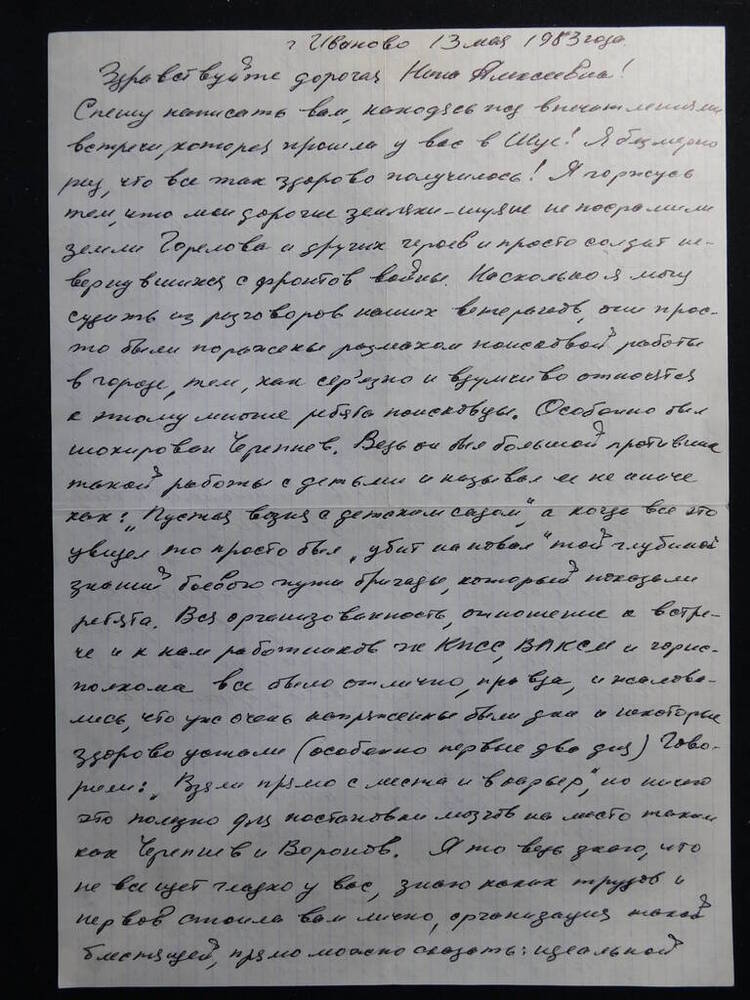 г Иваново 13 мая 1983 года.
Здравствуйте дорогая Нина Алексеевна!
Спешу написать вам, находясь под впечатлениями
встречи, которая прошла у вас в Шуе! Я безмерно
рад, что все так здорово получилось! Я горжусь
тем, что мои дорогие земляки-шуяне не посрамили
земли Горелова и других героев и просто солдат не-
вернувшихся с фронтов войны. Насколько я могу
судить из разговоров наших ветеранов, они прос-
то были поражены размахом поисковой работы
в городе, тем, как сер'езно и вдумчиво относятся
к этому многие ребята поисковцы. Особенно был
шокирован Черепнев. Ведь он был большой противник
такой работы с детьми и называл ее не иначе
как: „Пустая возня с детским садом", а когда все это
увидел то просто был „убит наповал" той глубиной
знаний боевого пути бригады, который показали
ребята. Вся организованность, отношение к встре-
че и к нам работников ГК КПСС, ВЛКСМ и горис-
полкома все было отлично, правда, и жалова-
лись, что уж очень напряженные были дни и некоторые
здорово устали (особенно первые два дня) Гово-
рили: „Взяли прямо с места и в карьер", но ничего
это полезно для постановки мозгов на место таким
как Черепнев и Воронов. Я то ведь знаю, что
не все идет гладко у вас, знаю каких трудов и
нервов стоила вам лично, организация такой
блестящей, прямо можно сказать: идеальной